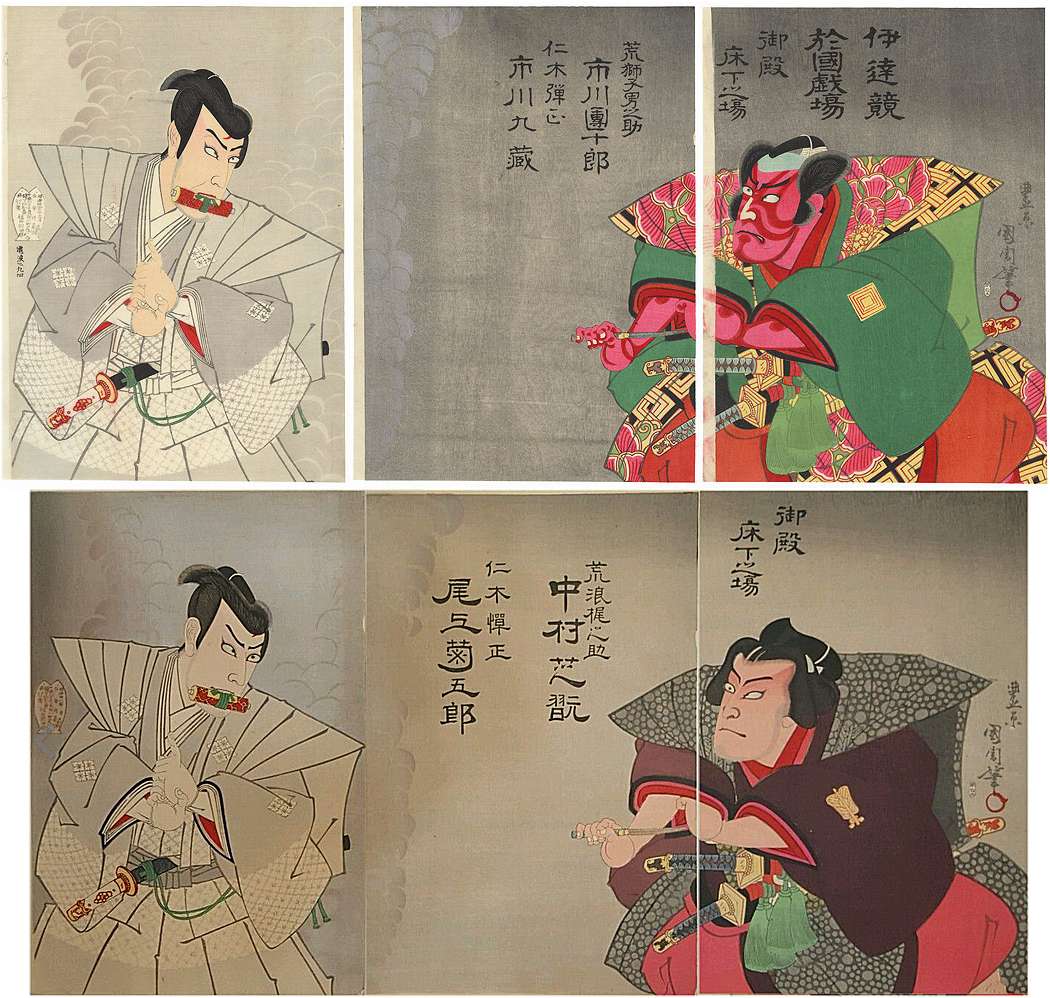 伊達競
於國戯場
御殿
床下之場
荒獅子男之助
市川團十郎
仁木弾正
市川九蔵
豊原
国周筆
御殿
床下之場
荒浪梶之助
中村芝翫
仁木憚正
尾上菊五郎
豊原
国周筆